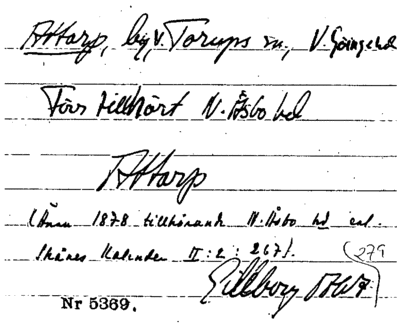 Attarp, by, V. Torups sn, V. Göinge hd
Förr tillhört N. Åsbo hd
Attarp
(Ännu 1878 tillhörande N. Åsbo hd enl.
Skånes Kalender II:2:267).
279
Gillberg
Nr 5369.